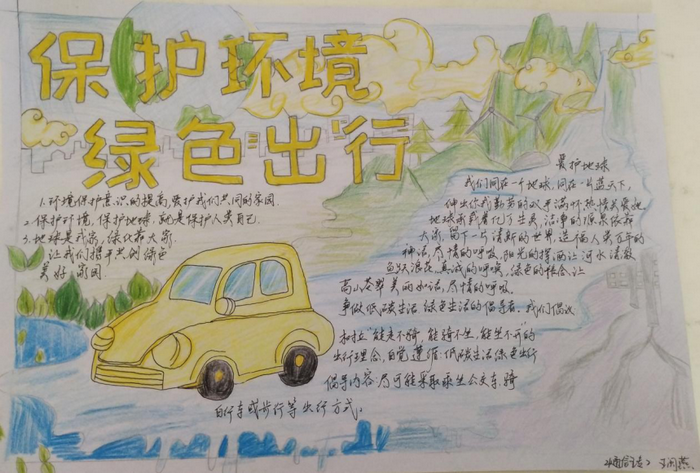 保护环境
绿色出行
1.环境保护意识的提高,爱护我们共同的家园.
2.保护环境,保护地球,就是保护人类自己.
3.地球是我家,绿化靠大家.
让我们携手共创绿色
美好家园
爱护地球
我们同在一个地球,同在一片蓝天下,
伸出你我勤劳的双手满怀热情关爱她
地球承载着亿万生灵,洁净的源泉依靠
大家,留下一片清新的世界,造福人类万年的
神话,尽情的呼吸,阳光的挥洒让河水清澈
鱼跃浪花,真诚的呼唤,绿色的
高山苍翠美丽
争做低碳生活绿色生活的倡导者,我们倡议
树立"能走不骑,能骑不坐,能坐不开"的
出行理念,自觉遵循.低碳生活绿色出行
倡导内容:尽可能采取乘坐公交车,骑
自行车或步行等出行方式。